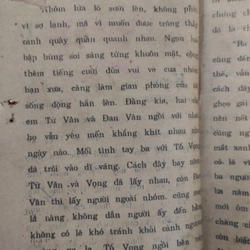 Thôm lửa lò sưởi lên, không phả
vì sợ lạnh, mà vì muốn được trông thấy
cảnh quây quần quanh nhau. Ngọn lửa
bập bùng soi sáng từng khuôn mặt, cộng
thêm tiếng cười đùa vui vẻ của nhóm
bạn xưa, càng làm gian phòng của
sống động hẳn lên. Đằng kia, hai c
em Tử Vân và Đan Vân ngồi với nha
họ vẫn yêu mến khắng khít nhau nh
ngày nào. Mối tình tay ba với Tố Vọ
đã trôi vào dĩ vãng. Cách đây bảy năm
Tử Vân và Vọng đã lấy nhau, còn Đ
Vân thì lấy người ngoài nhóm. cũng
là nàng không dẫn người ấy đến
lẽ không có khó tránh khỏi cảnh
Tố Vọng ngồi bên